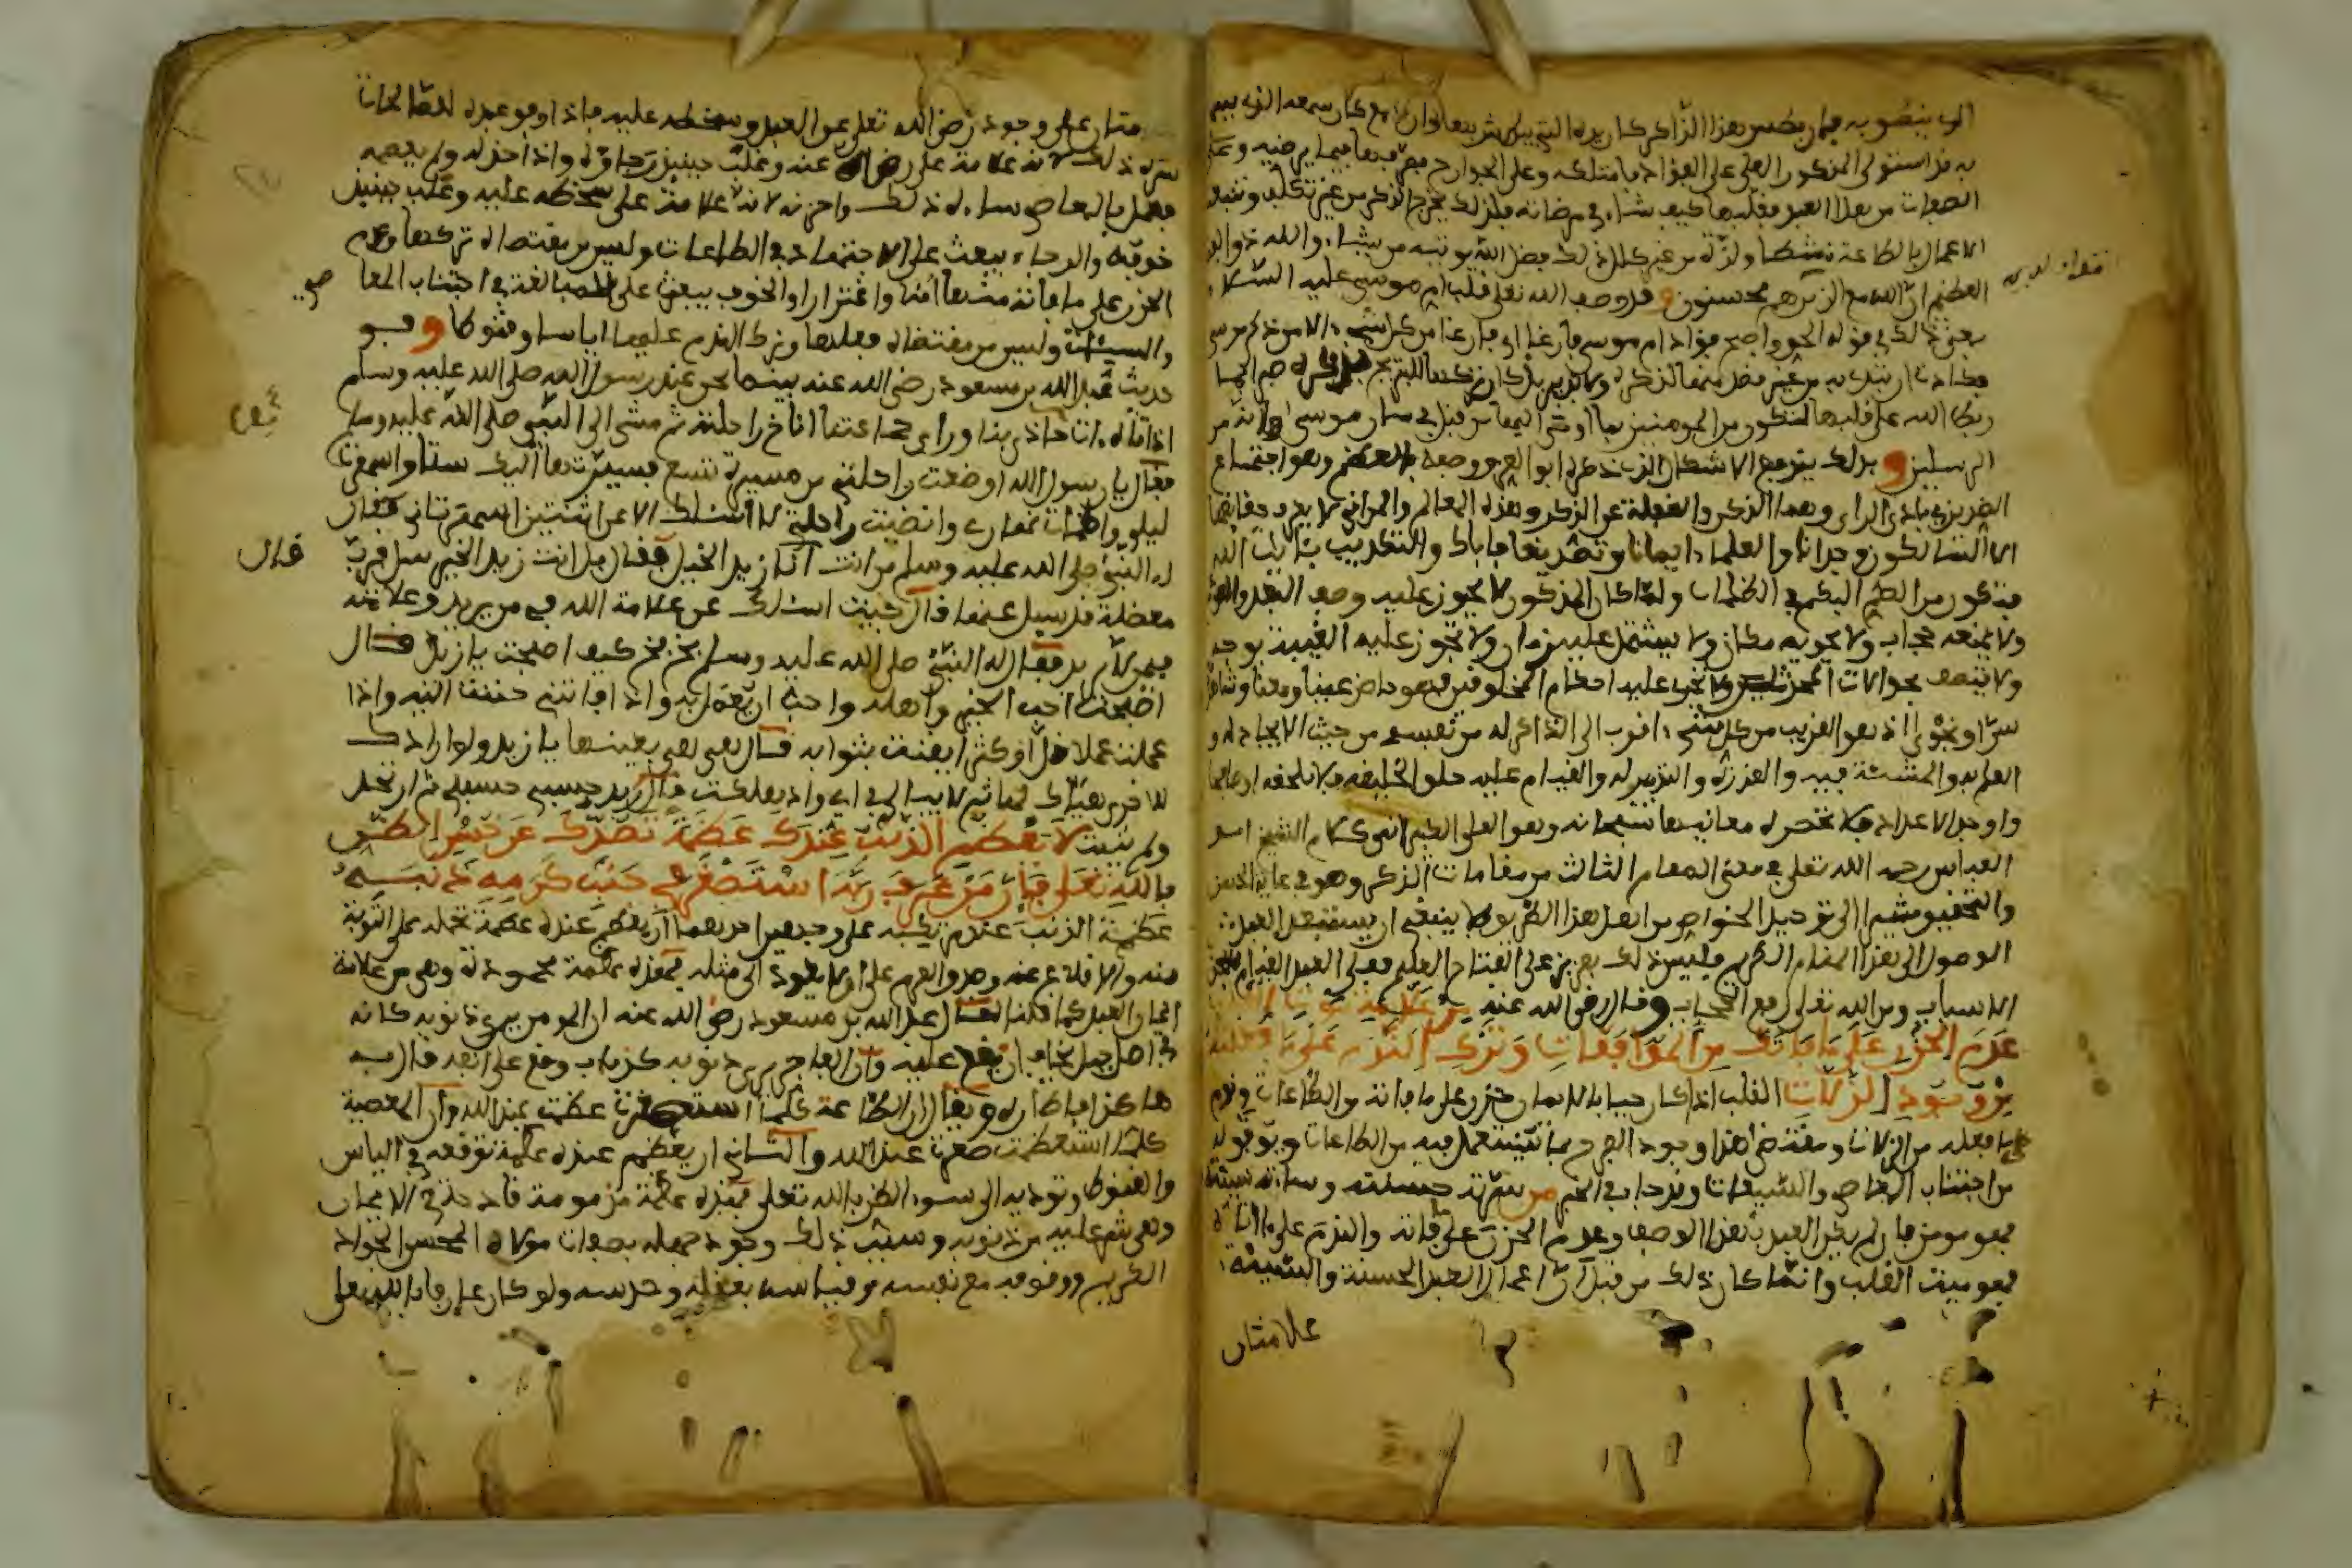 الذي ينطق به فإن بطش هذا الذاكر كان يده التي يبطش بها وإن سمع كان سمعه الذي يسمع
به قد استولى المذكور العلي على الفؤاد فامتلكه وعلى الجوارح فصرفها فيما يرضيه وعلى
الصفات من هذا العبد فقلبها كيف شاء في مرضاته فلذلك يخرج الذكر من غير تكلف وتنبعث
الاعمال بالطاعة نشطا ولذة من غير كلال ذلك فضل الله يوتيه من يشاء والله ذو الفضل
العظيم ان الله مع الذين هم محسنون وقد وصف الله تعلى قلب ام موسى عليه السلام
بمعنى ذلك في قوله الحق واصبح فؤاد ام موسى فارغا اي فارغا من كل شيء الا من ذكر موسى
فكادت ان تبدي به من غير قصد منها لذكره ولا تدبير بل كان تركها للتدبير
ربط الله على قلبها لتكون من المومنين بما اوحى اليها من قبل في شان موسى وانه من
المرسلين وبذلك يرتفع الاشكال الذي ذكره ابو العز ووصفه بالعظم وهو اجتماع
الضدين في بادي الراي وهما الذكر والغفلة عن الذكر وهذه المعالم والمراقي لا يعرف حقائقها
الا السالكون وجدانا والعلماء ايمانا وتصديقا فاياك والتكذيب بآيات الله
فتكون من الصم البكم في الظلمات ولما كان المذكور لا يجوز عليه وصف الفقد والعدم
ولا يمنعه حجاب ولا يحويه مكان ولا يشتمل عليه زمان ولا تجوز عليه الغيبة بوجه
ولا يتصف بحوادث المحدثين ولا يجري عليه احكام المخلوقين فهو حاضر عينا ومعنا وشاهد
سرا ونجوى اذ هو القريب من كل شيء واقرب الى الذاكر له من نفسه من حيث الايجاد له و
العلم به والمشيئة فيه والقدرة والتدبير له والقيام عليه خلق الخليقة فلا تلحقه اوصافها
واوجد الاعداد فلا تحصره معانيها سبحانه وهو العلي الكبير انتهى كلام الشيخ ابي
العباس رحمه الله تعلى في معنى المقام الثالث من مقامات الذكر وهو في غاية الحسن
والتحقيق مشير الى توحيد الخواص من اهل هذا الطريق ولا ينبغي ان يستبعد العبد
الوصول الى هذا المقام الكريم فليس ذلك بعزيز على الفتاح العليم فعلى العبد القيام بحق
الاسباب ومن الله تعلى رفع الحجاب وقال رضي الله عنه من علامة موت القلب
عدم الحزن على ما فاتك من الموافقات وترك الندم على ما فعلته
من وجود الزلات القلب اذا كان حيا بالايمان حزن على ما فاته من الطاعات وندم
على ما فعله من الزلات ومقتضى هذا وجود الفرح بما يستعمل فيه من الطاعات ويوفق له
من اجتناب المعاصي والسيئات وقد جاء في الخبر من سرته حسنته وساءته سيئته
فهو مومن فان لم يكن العبد بهذا الوصف وعدم الحزن على ما فاته والندم على ما اتاه
فهو ميت القلب وانما كان ذلك من قبل ان اعمال العبد الحسنة والسيئة
علامتان
علامتان على وجود رضى الله تعلى عن العبد وسخطه عليه فاذا وفق عبده للصالحات
سره ذلك لانه علامة على رضاه عنه وغلب حينئذ رجاؤه واذا خذله ولم يعصمه
فعمل بالمعاصي ساءه ذلك واحزنه لانه علامة على سخطه عليه وغلب حينئذ
خوفه والرجاء يبعث على الاجتهاد في الطاعات وليس من مقتضاه تركها وعدم
الحزن على ما فاته منها أمنا واغترارا والخوف يبعث على المبالغة في اجتناب المعاصي
والسيئات وليس من مقتضاه فعلها وترك الندم عليها اياسا وقنوطا وفي
حديث عبد الله بن مسعود رضي الله عنه بينما نحن عند رسول الله صلى الله عليه وسلم
اذ اتاه آت فلما حاذى بنا ورأى جماعتنا اناخ راحلته ثم مشى الى النبي صلى الله عليه وسلم
فقال يا رسول الله اوضعت راحلتي من مسيرة تسع فسيرتها اليك ستا واسهرت
ليلي واظمات نهاري وانضيت راحلتي لاسئلك الا عن اثنتين اسهرتاني فقال
له النبي صلى الله عليه وسلم من انت قال انا زيد الخيل فقال بل انت زيد الخير سل فرب
معضلة قد سيل عنها قال جيت اسئلك عن علامة الله في من يريد وعلامته
فيمن لا يريد فقال له النبي صلى الله عليه وسلم بخ بخ كيف اصبحت يا زيد قال
اصبحت احب الخير واهله واحب ان يعمل به واذا فاتني حننت اليه واذا
عملت عملا قل او كثر ايقنت بثوابه قال هي هي بعينها يا زيد ولو ارادك
للاخرى هيأك لها ثم لا يبالي في اي واد هلكت قال زيد حسبي حسبي ثم ارتحل
ولم يثبت لا يعظم الذنب عندك عظمة تصدك عن حسن الظن
بالله تعلى فإن من عرف ربه استصغر في جنب كرمه ذنبه
عظمة الذنب عند مرتكبه على وجهين احدهما ان يعظم عنده عظمة تحمله على التوبة
منه والاقلاع عنه وصدق العزم على ان لا يعود الى مثله فهذه عظمة محمودة وهي من علامة
ايمان العبد كما قلنا قال عبد الله بن مسعود رضي الله عنه ان المومن يرى ذنوبه كانه
في اصل جبل يخاف ان يقع عليه وان الفاجر يرى ذنوبه كذباب وقع على انفه قال به
هاكذا فاطاره ويقال ان الطاعة كلما استصغرت عظمت عند الله وان المعصية
كلما استعظمت صغرت عند الله والثاني ان يعظم عنده عظمة توقعه في الياس
والقنوط وتوديه الى سوء الظن بالله تعلى فهذه عظمة مذمومة قادحة في الايمان
وهي شر عليه من ذنوبه وسبب ذلك وجود جهله بصفات مولاه المحسن الجواد
الكريم ووقوفه مع نفسه وقياسه بعقله وحدسه ولو كان عارفا بالله تعلى
قال